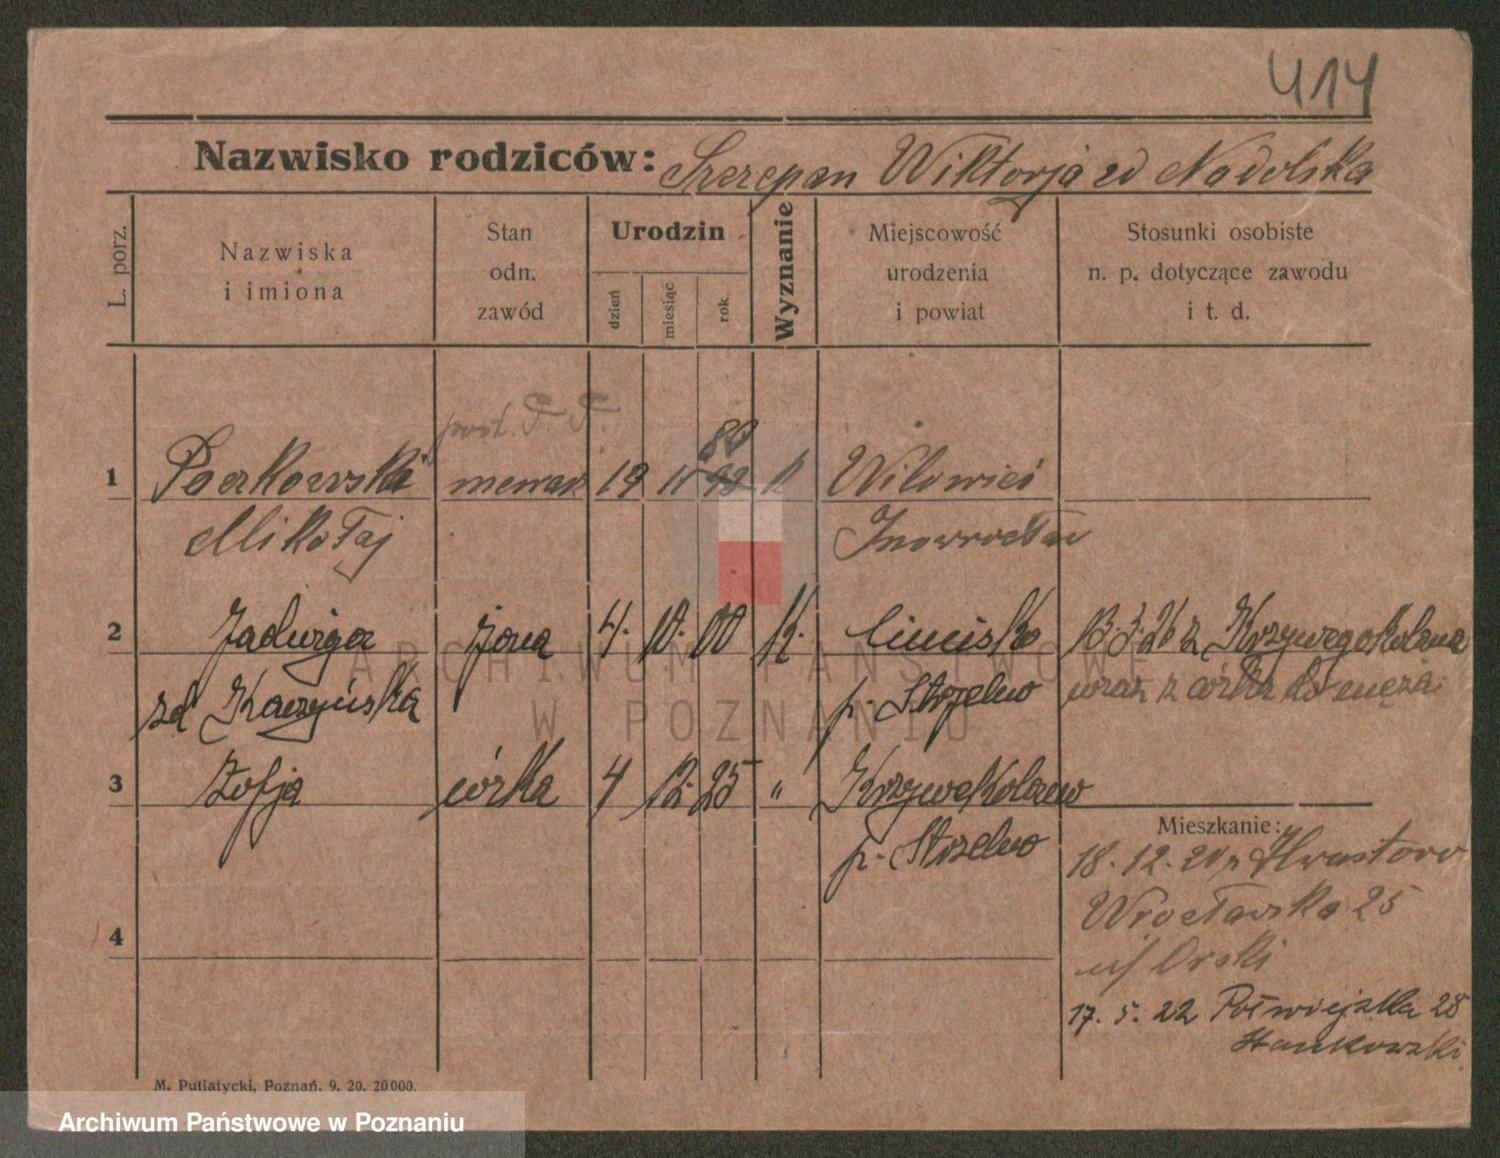 414
Nazwisko rodziców: Szczepan Wiktorja zd Nadolska
L. porz.
Nazwiska
i imiona
Stan
odn.
zawód
Urodzin
dzień
miesiąc
rok.
Wyznanie
Miejscowość
urodzenia
i powiat
Stosunki osobiste
n. p. dotyczące zawodu
i t. d.
post. F. F.
80
1 19 11 98 k
Mikołaj Inowrocław
2 Jadwiga żona 4. 10. 00 k. 13.3.26 z Krzywegokolana
zd Kaczyńska p. Strzelno wraz z córką do męża.
3 Zofja córka 4 12. 25 " Krzywekolano
p. Strzelno
Mieszkanie:
18.12.20
Wrocławska 25
u/ Orski
4
17. 5. 22 Półwiejska 28
Stankowski
M. Putiatycki, Poznań. 9. 20. 20000.
ARCHIWUM PAŃSTWOWE
W POZNANIU
Archiwum Państwowe w Poznaniu